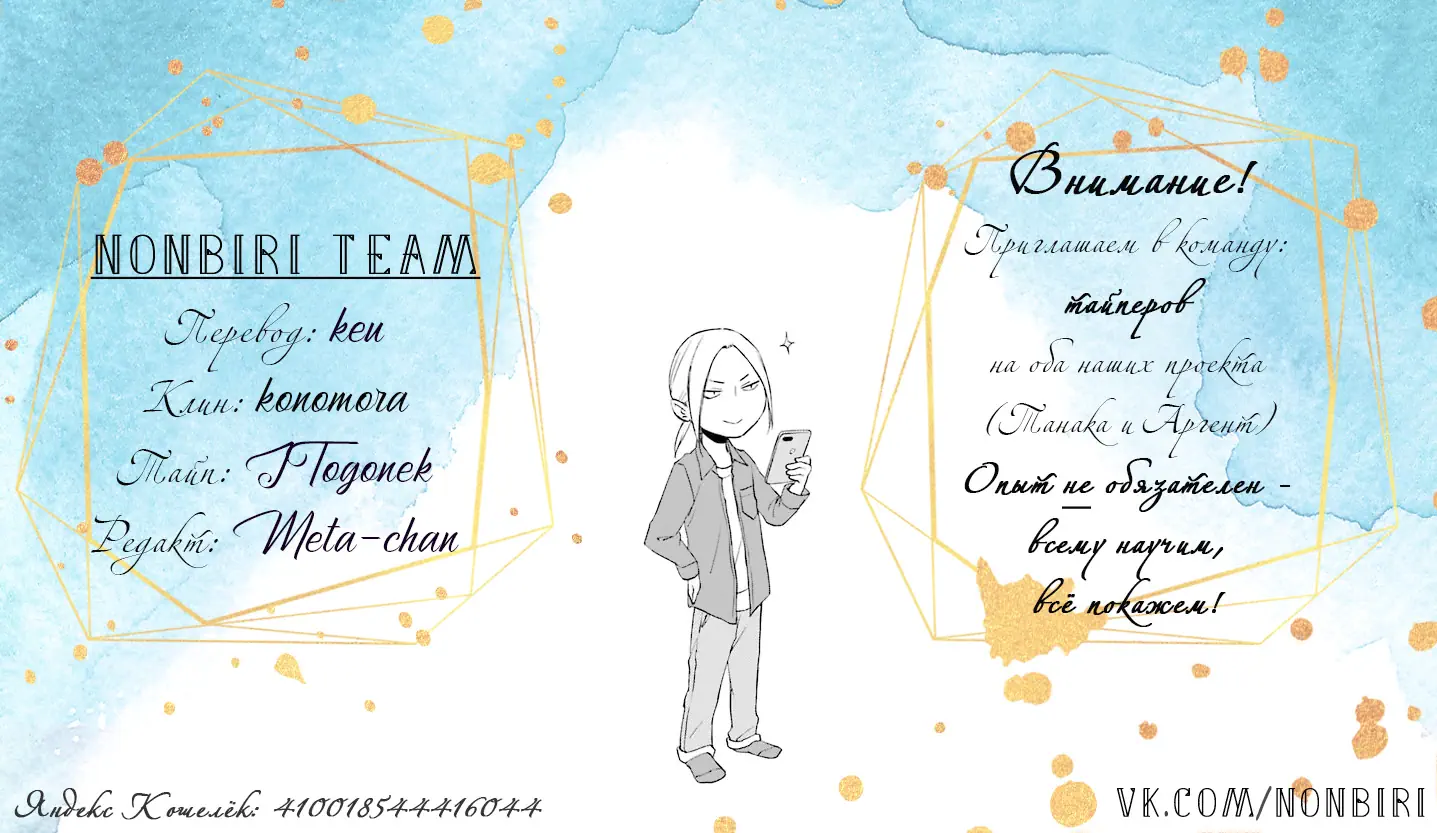 NONBIRI TEAM
Перевод: keu
Клин: konomora
Тайп: JTogonek
Редакт: Meta-chan
Внимание!
Приглашаем в команду:
тайперов
на оба наших проекта
(Танака и Аргент)
Опыт не обязателен -
всему научим,
всё покажем!
Яндекс Кошелёк: 410018544416044
VK.COM/NONBIRI